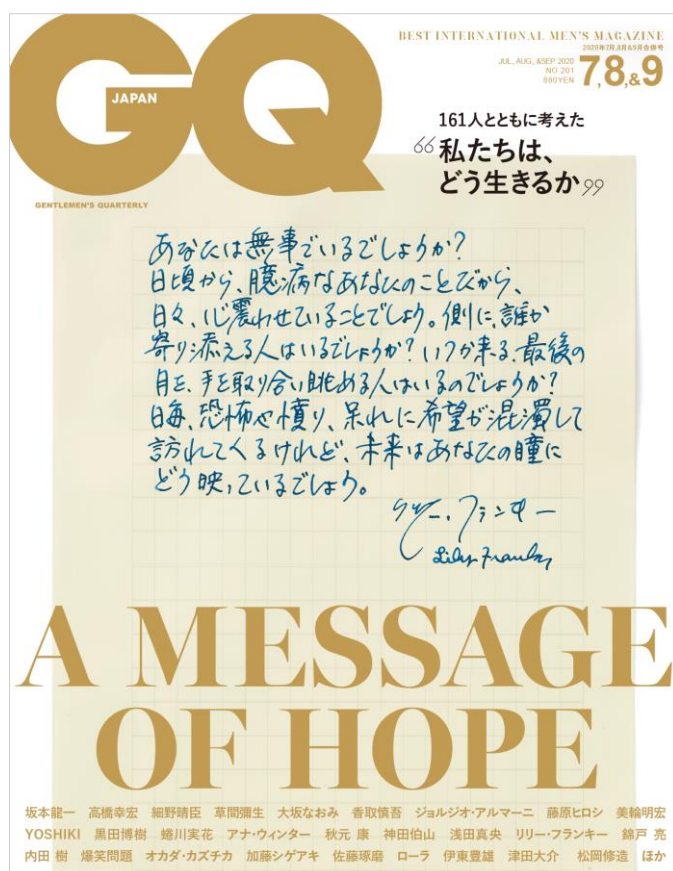 GQ
JAPAN
GENTLEMEN'S QUARTERLY
BEST INTERNATIONAL MEN'S MAGAZINE
2020年7月,8月&9月合併号
JUL, AUG, &SEP 2020
NO 201
7,8,&9
161人とともに考えた
“私たちは、
どう生きるか”
あなたは無事でいるでしょうか?
日頃から、臆病なあなたのことだから、
日々、心震わせていることでしょう。側に、誰か
寄り添える人はいるでしょうか? いつか来る、最後の
月を、手を取り合い眺める人はいるのでしょうか?
日毎、恐怖や憤り、呆れに希望が混濁して
訪れてくるけれど、未来はあなたの瞳に
どう映っているでしょう。
リリー・フランキー
Lily Franky
A MESSAGE
OF HOPE
坂本龍一 高橋幸宏 細野晴臣 草間彌生 大坂なおみ 香取慎吾 ジョルジオ・アルマーニ 藤原ヒロシ 美輪明宏
YOSHIKI 黒田博樹 蜷川実花 アナ・ウィンター 秋元 康 神田伯山 浅田真央 リリー・フランキー 錦戸 亮
内田 樹 爆笑問題 オカダ・カズチカ 加藤シゲアキ 佐藤琢磨 ローラ 伊東豊雄 津田大介 松岡修造 ほか